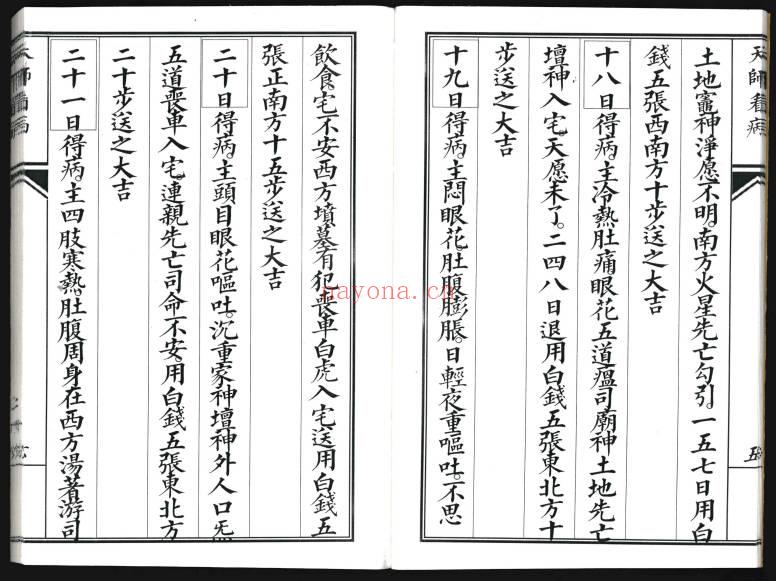 天師看病
土地竈神淨愿不明。南方火星先亡勾引。一五七日用白
錢五張西南方十步送之大吉
十八日得病。主冷熱肚痛眼花五道瘟司廟神土地先亡
壇神入宅。天愿未了。二四八日退用白錢五張東北方十
步送之大吉
十九日得病。主悶眼花。肚腹膨脹。日輕夜重嘔吐。不思
飲食。宅不安西方墳墓有犯喪車白虎入宅送用白錢五
張正南方十五步送之大吉
二十日得病。主頭目眼花嘔吐。沉重家神壇神外人口舌
五道喪車入宅。連親先亡司命不安。用白錢五張東北方
二十步送之大吉
二十一日得病。主四肢寒熱。肚腹周身在西方湯著游司
天師看病
nayona.cn